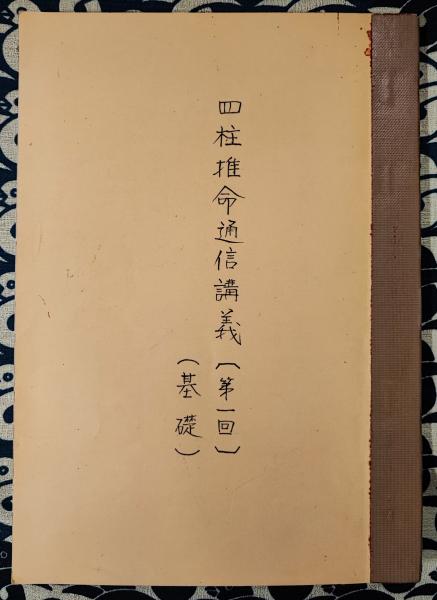 四柱推命通信講義〔第一回〕
（基礎）